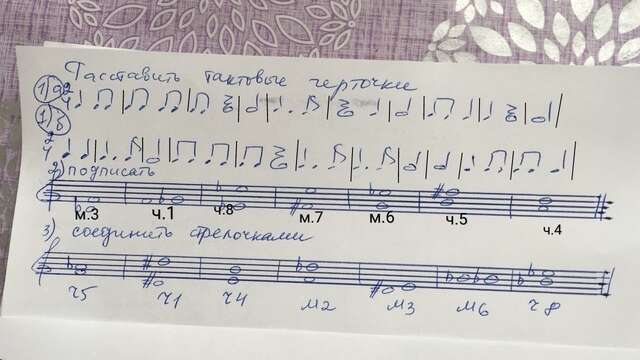 Расставить тактовые черточки
1)а) 2/4
1)б)
2/4
2) подписать
м.3 ч.1 ч.8 м.7 м.6 ч.5 ч.4
3) соединить стрелочками
ч5 ч1 ч4 м2 м3 м6 ч8